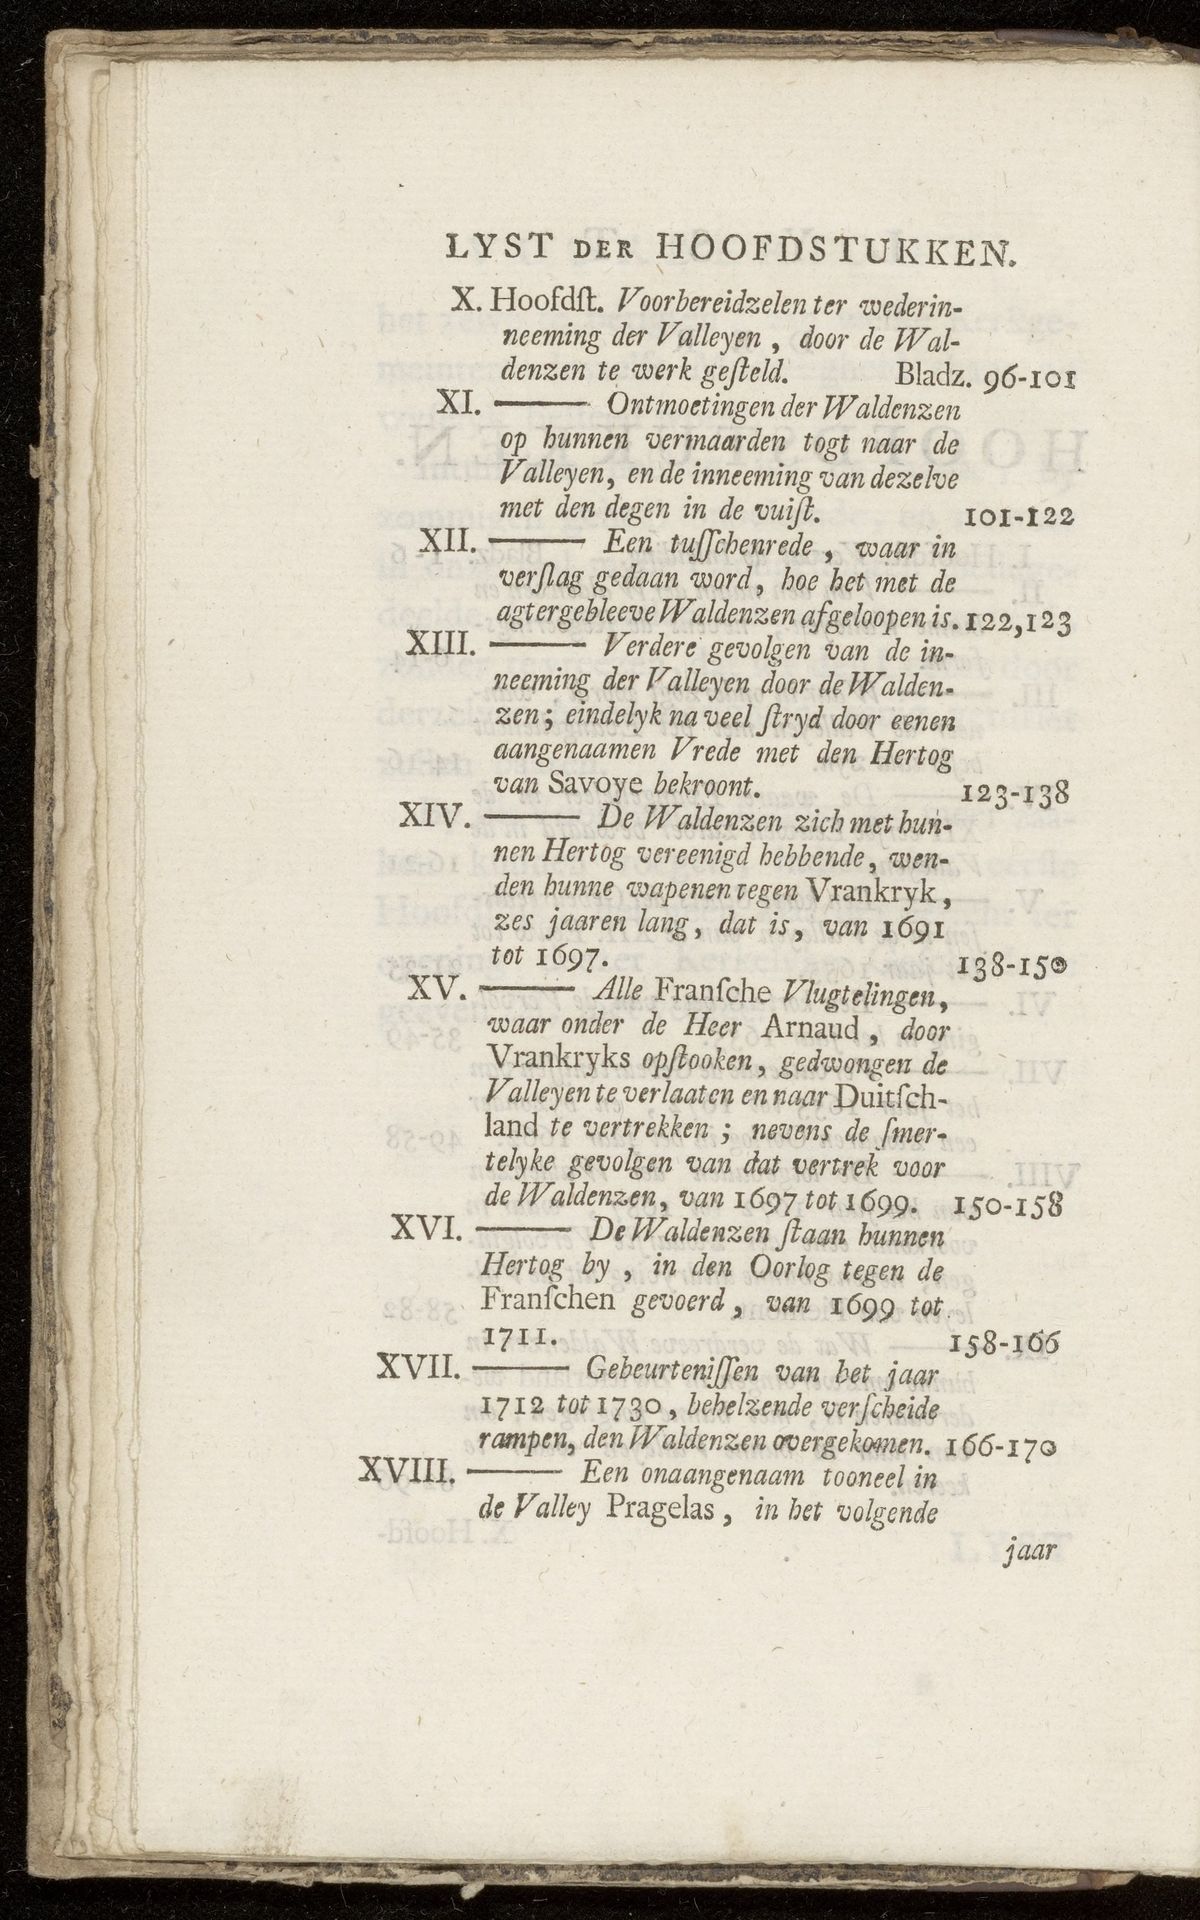 LYST DER HOOFDSTUKKEN.
X. Hoofdſt. Voorbereidzelen ter wederin-
neeming der Valleyen, door de Wal-
denzen te werk geſteld. Bladz. 96-101
XI. ——— Ontmoetingen der Waldenzen
op hunnen vermaarden togt naar de
Valleyen, en de inneeming van dezelve
met den degen in de vuiſt. 101-122
XII. ——— Een tuſſchenrede, waar in
verſlag gedaan word, hoe het met de
agtergebleeve Waldenzen afgeloopen is. 122,123
XIII. ——— Verdere gevolgen van de in-
neeming der Valleyen door de Walden-
zen; eindelyk na veel ſtryd door eenen
aangenaamen Vrede met den Hertog
van Savoye bekroont. 123-138
XIV. ——— De Waldenzen zich met hun-
nen Hertog vereenigd hebbende, wen-
den hunne wapenen tegen Vrankryk,
zes jaaren lang, dat is, van 1691
tot 1697. 138-150
XV. ——— Alle Franſche Vlugtelingen,
waar onder de Heer Arnaud, door
Vrankryks opſtooken, gedwongen de
Valleyen te verlaaten en naar Duitſch-
land te vertrekken; nevens de ſmer-
telyke gevolgen van dat vertrek voor
de Waldenzen, van 1697 tot 1699. 150-158
XVI. ——— De Waldenzen ſtaan hunnen
Hertog by, in den Oorlog tegen de
Franſchen gevoerd, van 1699 tot
1711. 158-166
XVII. ——— Gebeurteniſſen van het jaar
1712 tot 1730, behelzende verſcheide
rampen, den Waldenzen overgekomen. 166-170
XVIII. ——— Een onaangenaam tooneel in
de Valley Pragelas, in het volgende
jaar